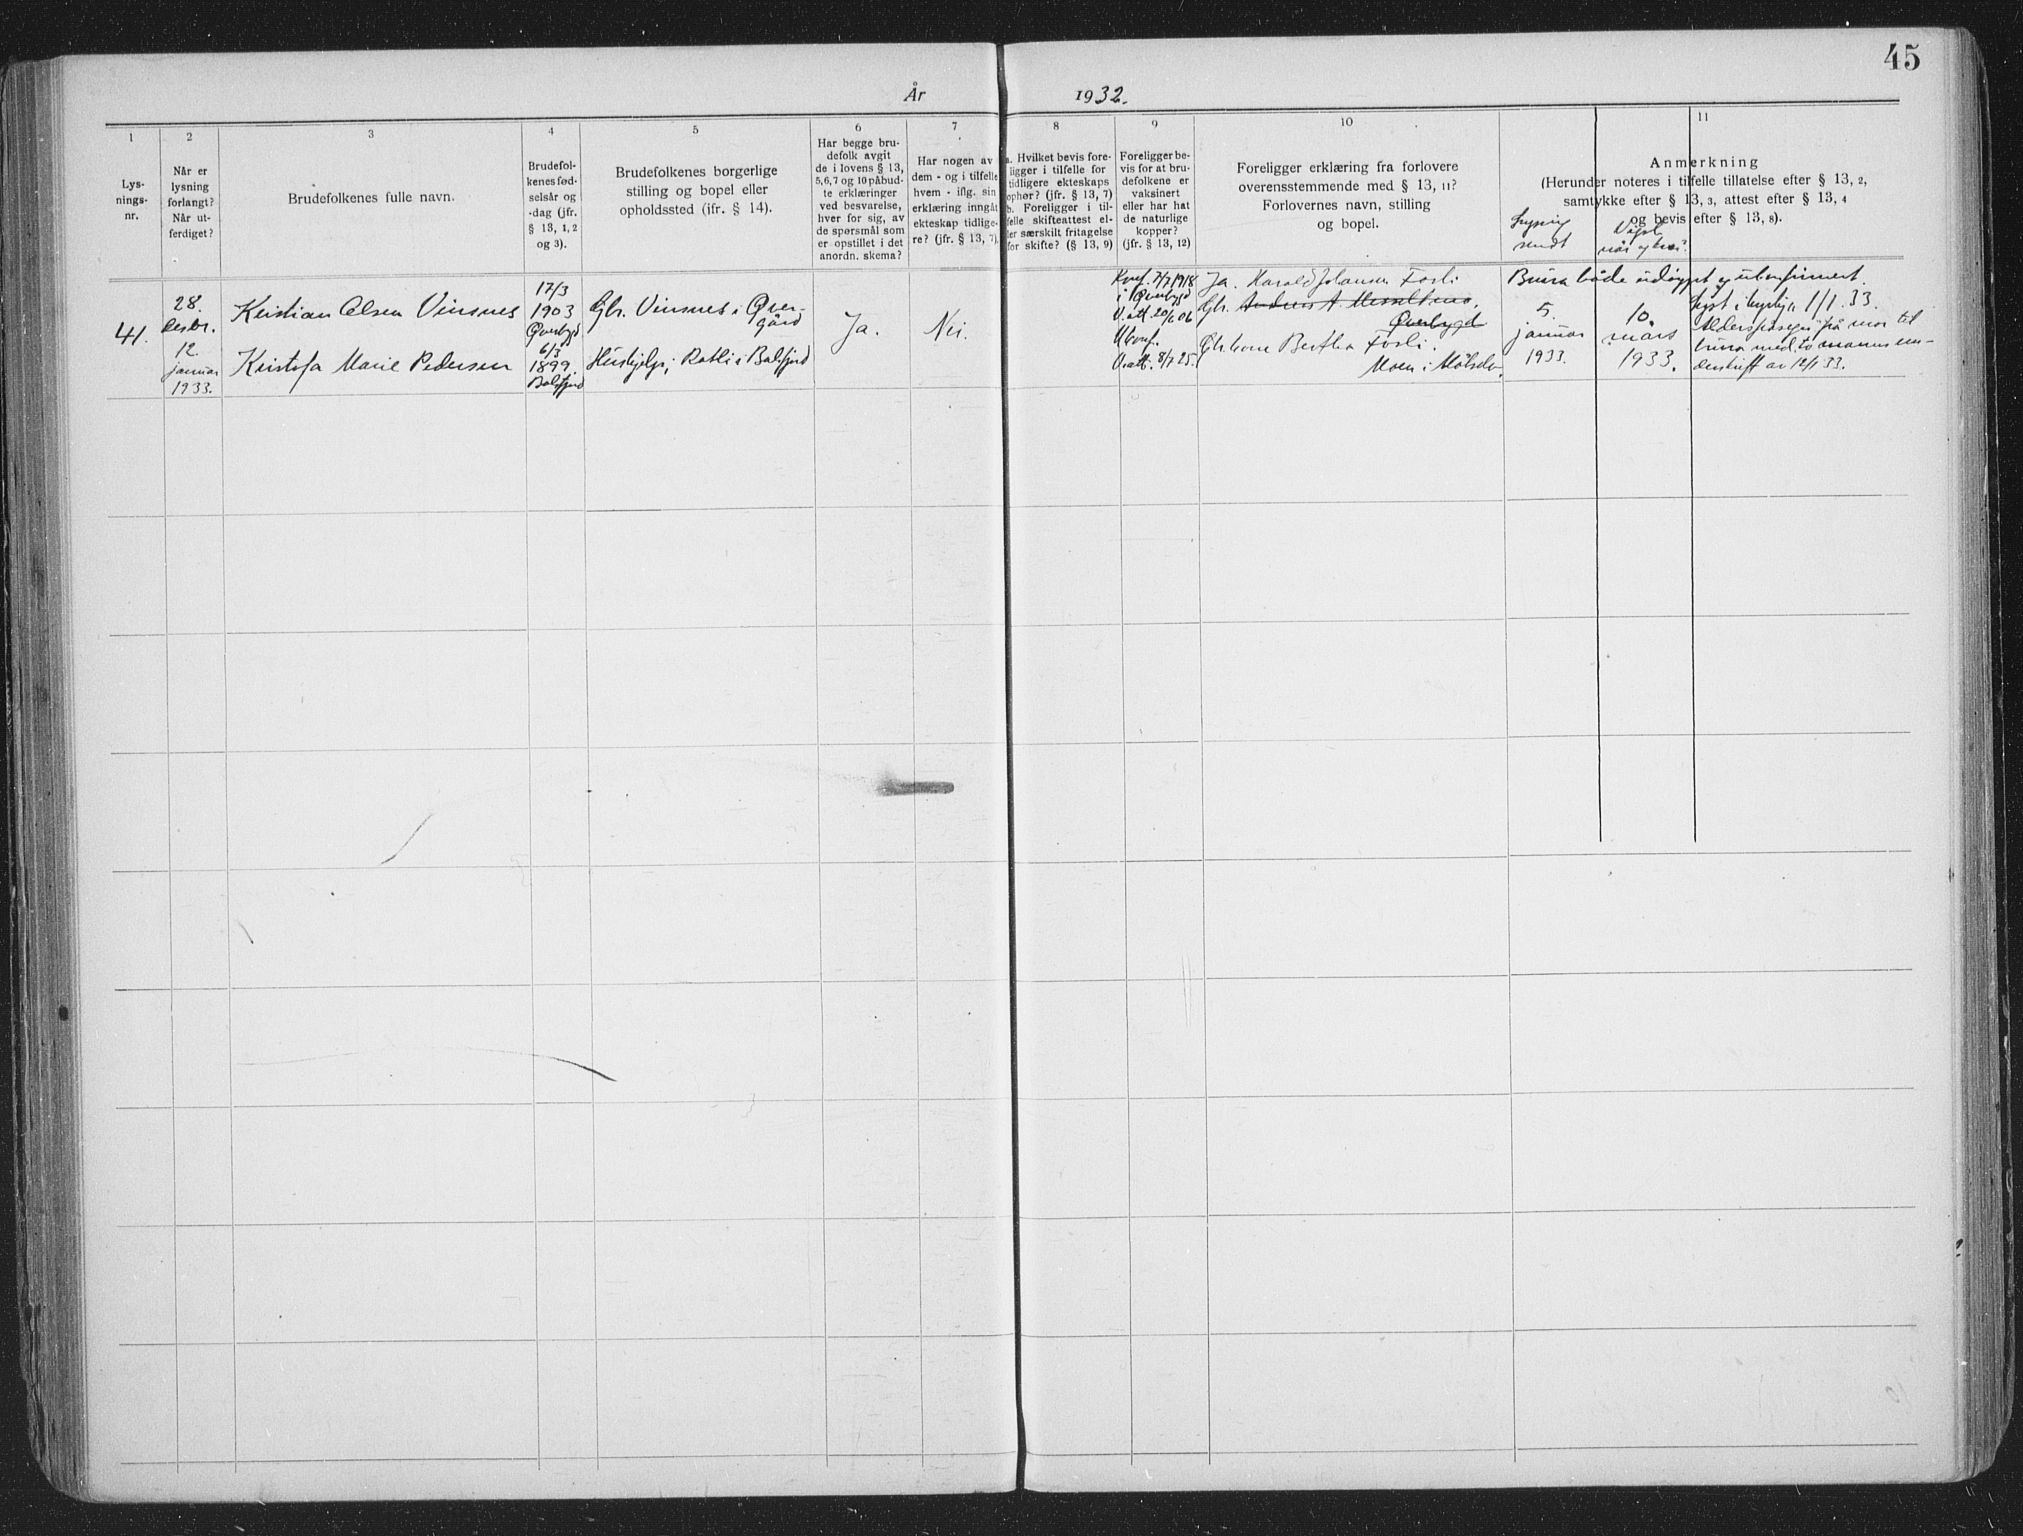 45
År 1932.
1
Lys-
nings-
nr.
2
Når er
lysning
forlangt?
Når ut-
ferdiget?
3
Brudefolkenes fulle navn.
4
Brudefol-
kenes fød-
selsår og
-dag (jfr.
§ 13, 1, 2
og 3).
5
Brudefolkenes borgerlige
stilling og bopel eller
opholdssted (ifr. § 14).
6
Har begge bru-
defolk avgit
de i lovens § 13,
5,6,7 og 10 påbud-
te erklæringer
ved besvarelse,
hver for sig, av
de spørsmål som
er opstillet i det
anordn. skema?
7
Har nogen av
dem - og i tilfelle
hvem - iflg. sin
erklæring inngåt
ekteskap tidlige-
re? (jfr. § 13, 7).
8
a. Hvilket bevis fore-
ligger i tilfelle for
tidligere ekteskaps
ophør? (jfr. § 13, 7)
b. Foreligger i til-
felle skifteattest el-
ler særskilt fritagelse
for skifte? (§ 13, 9)
9
Foreligger be-
vis for at bru-
defolkene er
vaksinert
eller har hat
de naturlige
kopper?
(jfr. § 13, 12)
10
Foreligger erklæring fra forlovere
overensstemmende med § 13, 11?
Forlovernes navn, stilling
og bopel.
11
Anmerkning
(Herunder noteres i tilfelle tillatelse efter § 13, 2,
samtykke efter § 13, 3, attest efter § 13, 4
og bevis efter § 13, 8).
Lysning
sendt
Vigsl
når og hvor?
41.
28.
desbr.
12.
januar
1933.
Kristian Olsen Vinsnes
Kristofa Marie Pedersen
17/3
1903
Øverbygd
6/3
1899.
Balsfjord
Gbr. Vinsnes i Øver-
gård
Hushjelp, i Balsfjord
Ja.
Nei.
Konf. 7/7 1918
i Øverbygd
V. att. 20/6 06
Ukonf.
V. att. 8/7 25.
Ja. Harald Johansen Fosli
Gbr.
Øverbygd
Bertha Fosli.
Moen i Målselv.
Brura både udøypt og ukonfirmert.
5.
januar
1933.
10.
mars
1933.
Lyst i 1/1. 33.
frå mor til
brura med to manns un-
derskrift av 12/1 33.